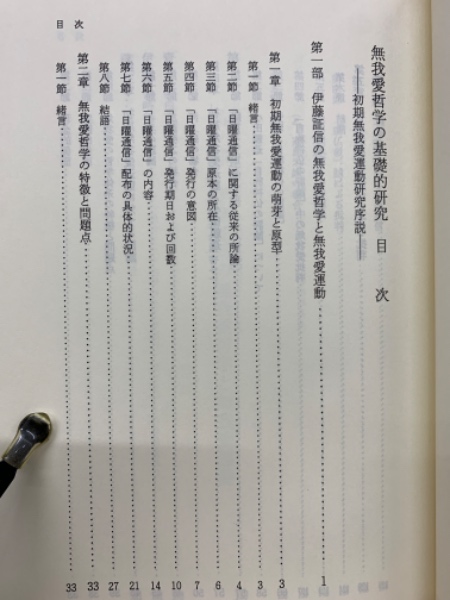 無我愛哲学の基礎的研究 目次
――初期無我愛運動研究序説――
第一部 伊藤証信の無我愛哲学と無我愛運動……1
第一章 初期無我愛運動の萌芽と原型……3
第一節 緒言……3
第二節 「日曜通信」に関する従来の所論……4
第三節 「日曜通信」原本の所在……6
第四節 「日曜通信」発行の意図……7
第五節 「日曜通信」発行期日および回数……10
第六節 「日曜通信」の内容……14
第七節 「日曜通信」配布の具体的状況……21
第八節 結語……27
第二章 無我愛哲学の特徴と問題点……33
第一節 緒言……33
目次